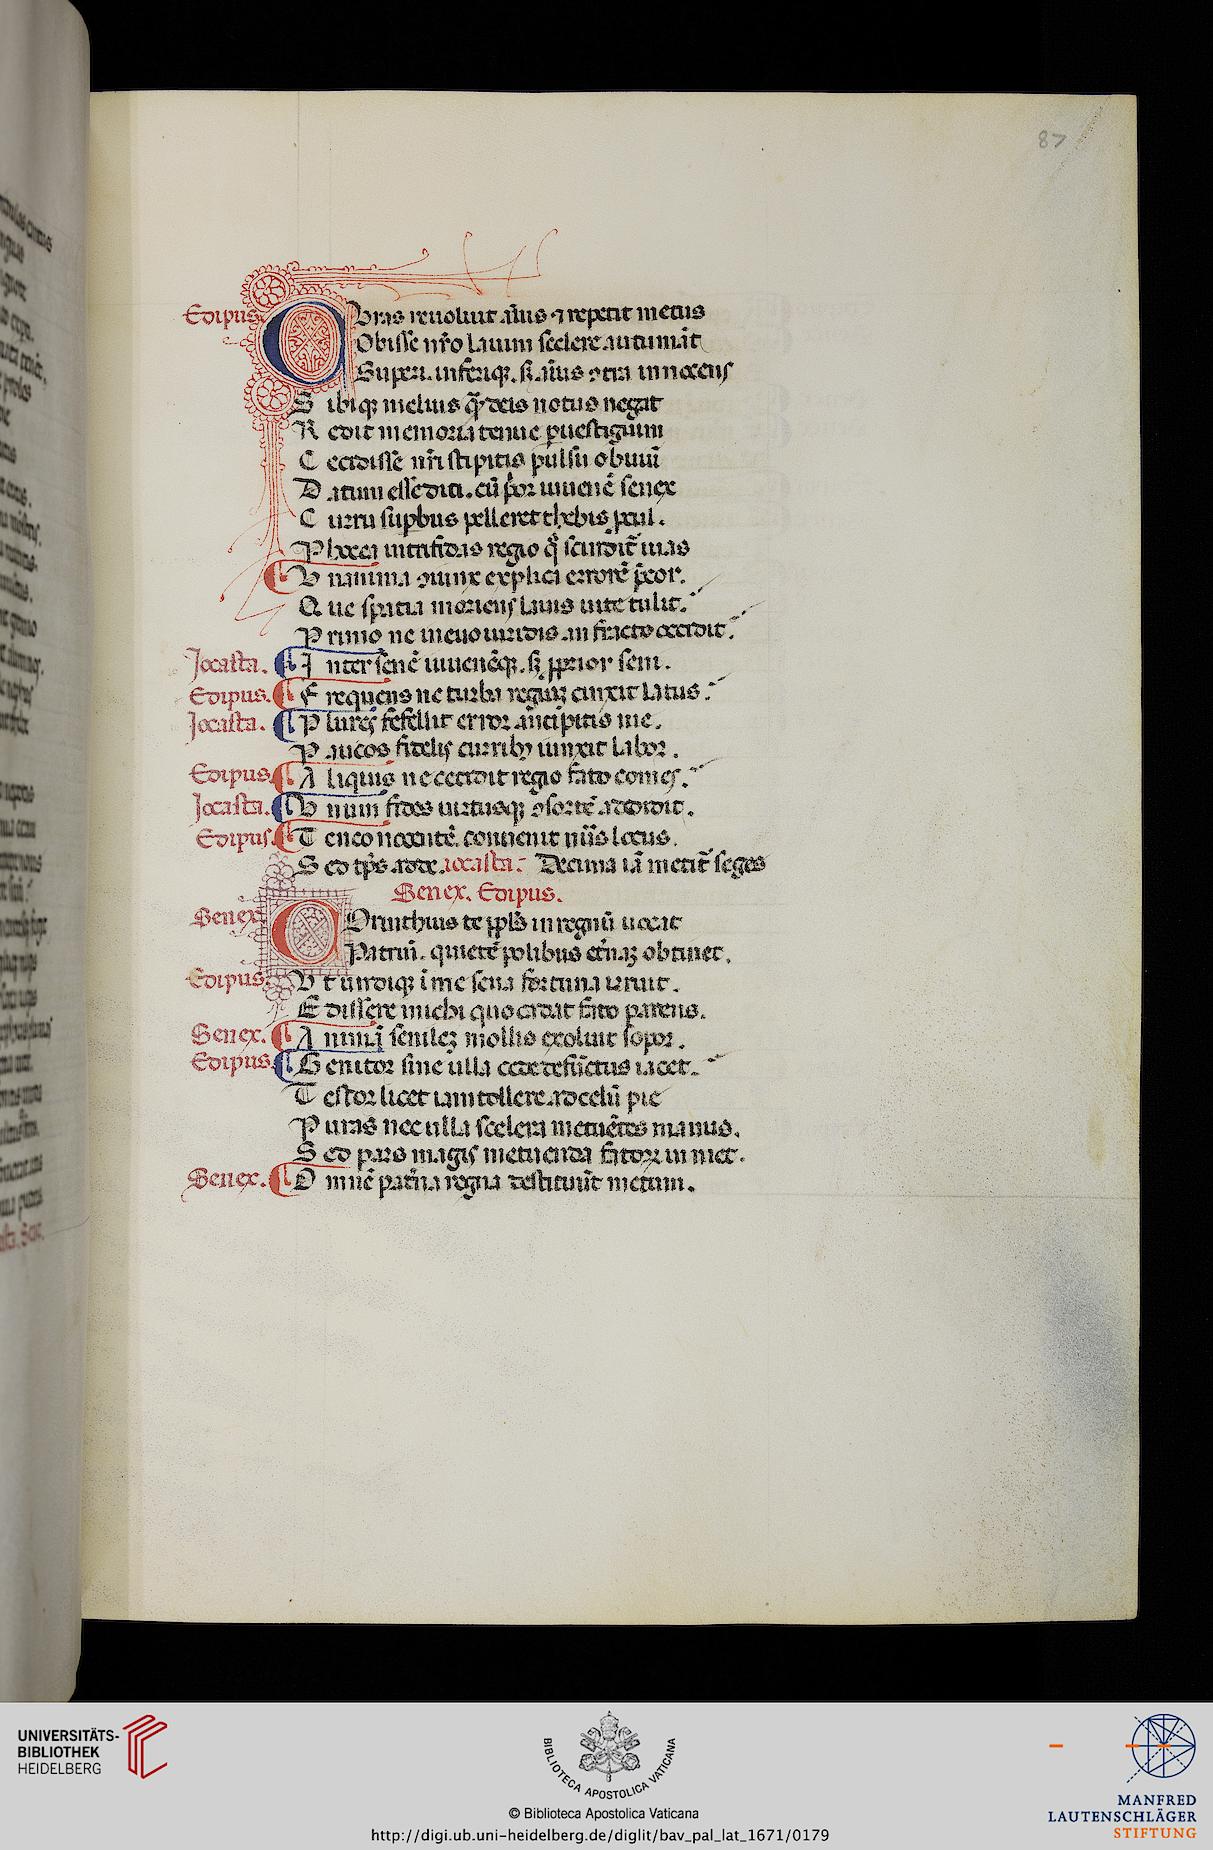 87
Edipus. Curas reuoluit aīus ⁊ repetit metus
Obisse nr̄o laium scelere autumāt
Superi. inferiqꝫ. sꝫ aīus ꝯtra innocens
Sibiqꝫ melius qͣ deis notus negat
Redit memoria tenue ꝑ uestigium
Cecidisse nr̄i stipitis pulsu obuiū
Datum esse diti. cū p̄or iuuenē senex
Curru suꝑbus pelleret thebis pcul.
Phocea intrifidas regio qͣ scindit uias
Vnanima ꝯiunx explica errorē p̄cor.
Que spatia moriens laius uite tulit.
Primo ne in euo uiridis an fracto occidit.
Jocasta. Inter senē iuuenēqꝫ. sꝫ ꝓprior seni.
Edipus. Frequens ne turba regiaꝫ cinxit latus.
Jocasta. Plures fefellit error ancipitis uie.
Paucos fidelis curribꝫ iunxit labor.
Edipus. Aliquis ne cecidit regio fato comes.
Jocasta. Vnum fides uirtusqꝫ ꝯsortē addidit.
Edipus. Teneo nocentē. conuenit nūs locus.
Sed tp̄s adde. iocasta. Decima iā metit̄ seges
Senex. Edipus.
Senex. Corinthius te ppl̄s in regnū uocat
Patriū. quietē polibus etn̄aꝫ obtinet.
Edipus. Vt undiqꝫ ī me seua fortuna irruit.
Edissere michi quo cadat fato parens.
Senex. Animā senileꝫ mollis exoluit sopor.
Edipus. Genitor sine ulla cede defūctus iacet.
Testor licet iam tollere ad celū pie
Puras nec ulla scelera metuētes manus.
Sed pars magis metuenda fatoꝝ manet.
Senex. Omnē pat̄na regna destituūt metum.
UNIVERSITÄTS-
BIBLIOTHEK
HEIDELBERG
BIBLIOTECA APOSTOLICA VATICANA
© Biblioteca Apostolica Vaticana
http://digi.ub.uni-heidelberg.de/diglit/bav_pal_lat_1671/0179
MANFRED
LAUTENSCHLÄGER
STIFTUNG